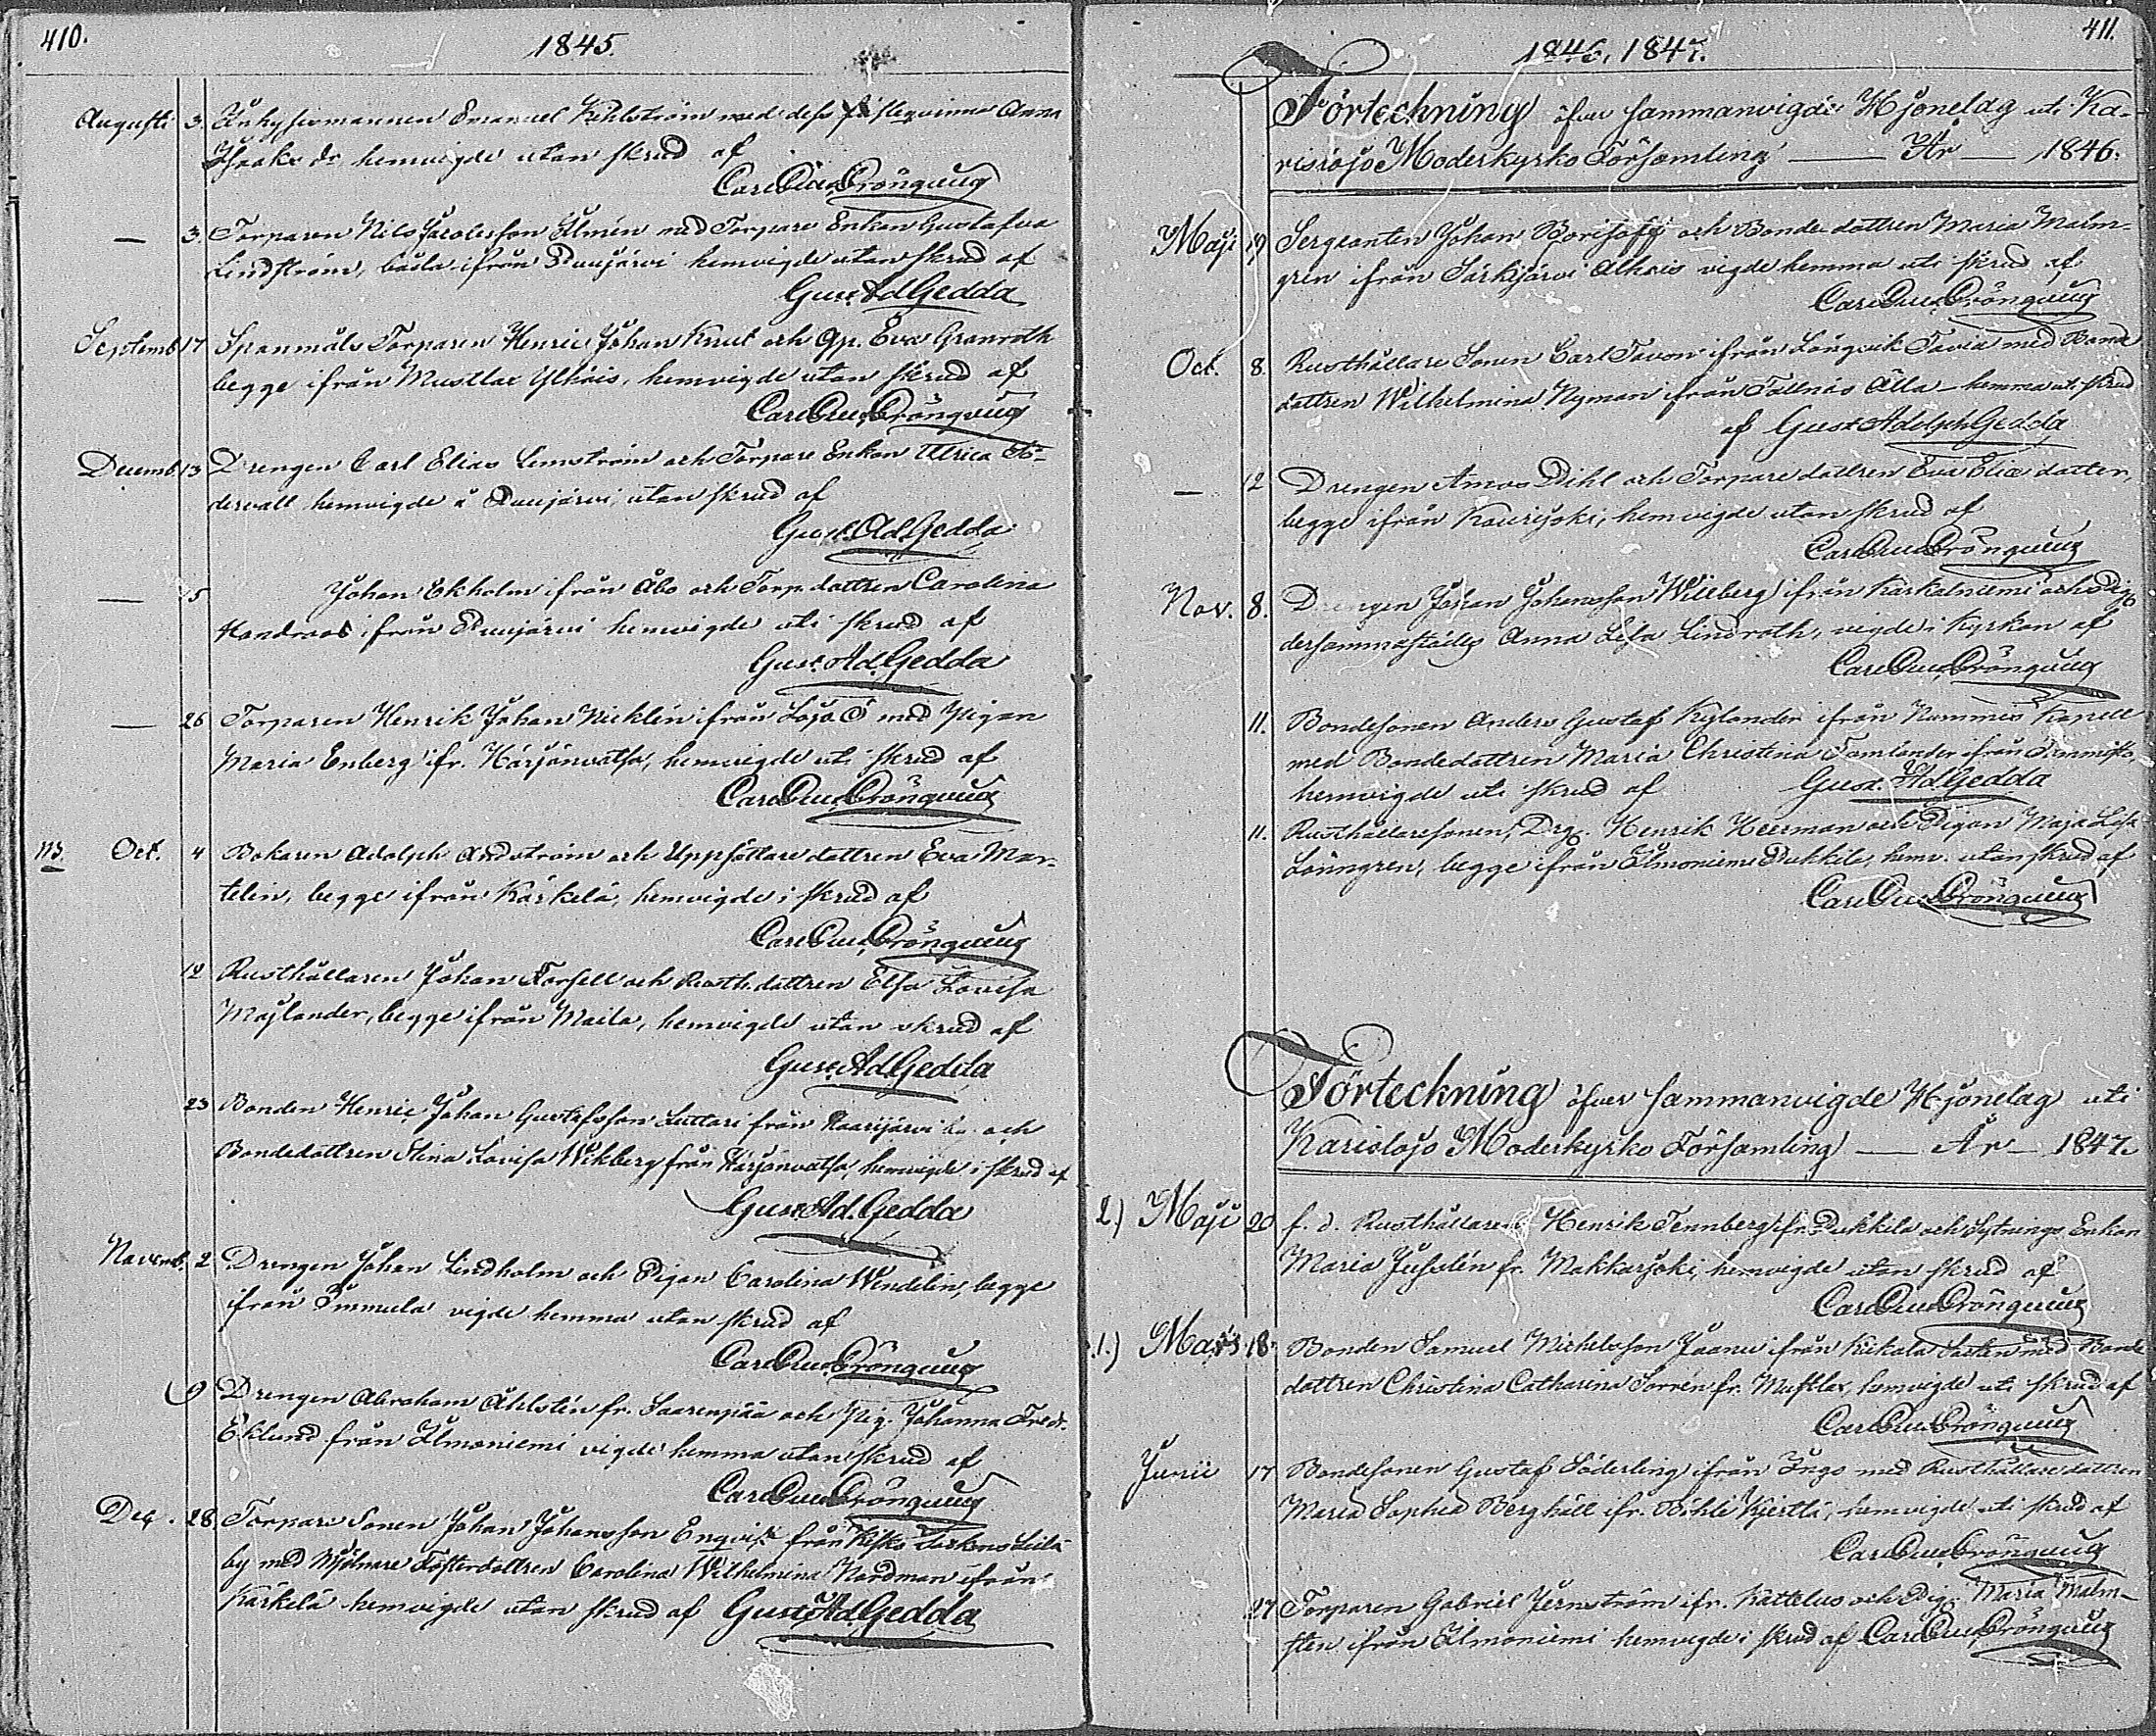 410.
1845.
Augusti 3. Enkhysismannen Emanuel Kihlström med dess Anna
Isaaks dr hemvigde utan skrud af
Carl Gust. Grönqvist
— 3. Torparen Nils Jacobsson Ilmén med Torpare Enkan Gustafva
Lindström, båda ifrån Puujärvi hemvigde utan skrud af
Gust. Ad. Gedda
Septemb. 17 Spanmåls Torparen Henric Johan Knut och Qp. Eva Granroth
begge ifrån Mustlax Ylhäis, hemvigde utan skrud af
Carl Gust. Grönqvist
Decemb. 13 Drengen Carl Elias Lemström och Torpare Enkan Ulrica
dervall hemvigde å Puujärvi, utan skrud af
Gust. Ad. Gedda
— 15 Johan Ekholm ifrån Åbo och Torp. dottren Carolina
Handroos ifrån Puujärvi hemvigde uti skrud af
Gust. Ad. Gedda
— 26 Torparen Henrik Johan Nicklén ifrån Lojo med pigan
Maria Enberg ifr. Härjänvatsa, hemvigde uti skrud af
Carl Gust. Grönqvist
ns. Oct. 4 Bokaren Adolph Andström och Uppsyttare dottren Eva Mar-
telin, begge ifrån Kärkelä, hemvigde i skrud af
Carl Gust. Grönqvist
12 Rusthållaren Johan Forsell och Rusth. dottren Elsa Lovisa
Majlander, begge ifrån Maila, hemvigde utan skrud af
Gust. Ad. Gedda
23 Bonden Henric Johan Gustafsson Luttari från Naarijärvi och
Bondedottren Stina Lovisa Wikberg från Härjänvatsa, hemvigde i skrud af
Gust. Ad. Gedda
Novemb. 2 Drengen Johan Lindholm och Pigan Carolina Wendelin, begge
ifrån Immula vigde hemma utan skrud af
Carl Gust. Grönqvist
9 Drengen Abraham Åhlstén fr. Saarenpää och pig. Johanna Fredr.
Eklund från Ilmoniemi vigde hemma utan skrud af
Carl Gust. Grönqvist
Dec. 28. Torpare Sonen Johan Johansson Enqvist från Kisko Leilä
by med Mjölnare Fosterdottren Carolina Wilhelmina Nordman ifrån
Kärkelä hemvigde utan skrud af Gust. Ad. Gedda
411.
1846, 1847.
Förteckning öfver sammanvigde Hjonelag uti Ka-
rislojo Moderkyrko Församling — År — 1846.
Maji 19 Sergeanten Johan Borisoff och Bonde dottren Maria Malm-
gren ifrån Särkjärvi Alhais vigde hemma uti skrud af
Carl Gust. Grönqvist
Oct. 8. Rusthållare Sonen Carl Tavon ifrån Långvik Tavia med Bonde
dottren Wilhelmina Nyman ifrån Tollnäs Alla hemma uti skrud
af Gust. Adolph Gedda
— 12 Drengen Amos Dihl och Torpare dottren Eva Eliæ dotter,
begge ifrån Kourjoki, hemvigde utan skrud af
Carl Gust. Grönqvist
Nov. 8. Drengen Johan Johansson Willberg ifrån Karkalniemi och Pig.
dersammastädes Anna Lisa Lindroth, vigde i Kyrkan af
Carl Gust. Grönqvist
11. Bondesonen Anders Gustaf Kylander ifrån Nummis Kapell
med Bondedottren Maria Christina Tamlander ifrån
hemvigde uti skrud af Gust. Ad. Gedda
11. Rusthållaresonen, Drg. Henrik Heerman och Pigan Maja Lisa
Lönngren, begge ifrån Ilmoniemi Pukkila, hemv. utan skrud af
Carl Gust. Grönqvist
Förteckning öfver sammanvigde Hjonelag uti
Karislojo Moderkyrko Församling — År — 1847.
2.) Maji 20 f. d. Rusthållaren Henrik Tennberg fr. Pukkila och Sytnings Enkan
Maria Juselén fr. Makkarjoki, hemvigde utan skrud af
Carl Gust. Grönqvist
1.) Mars 18. Bonden Samuel Michelsson Jaanu ifrån Kukala med Bonde
dottren Christina Catharina Forrén fr. Mustlax, hemvigde uti skrud af
Carl Gust. Grönqvist
Junii 17 Bondesonen Gustaf Söderling ifrån Ingo med Rusthållare dottren
Maria Sophia Berghäll ifr. Böhle Kjerttä, hemvigde uti skrud af
Carl Gust. Grönqvist
27 Torparen Gabriel Jernström ifr. Kattelus och Pig. Maria Malm-
sten ifrån Ilmoniemi hemvigde i skrud af Carl Gust. Grönqvist